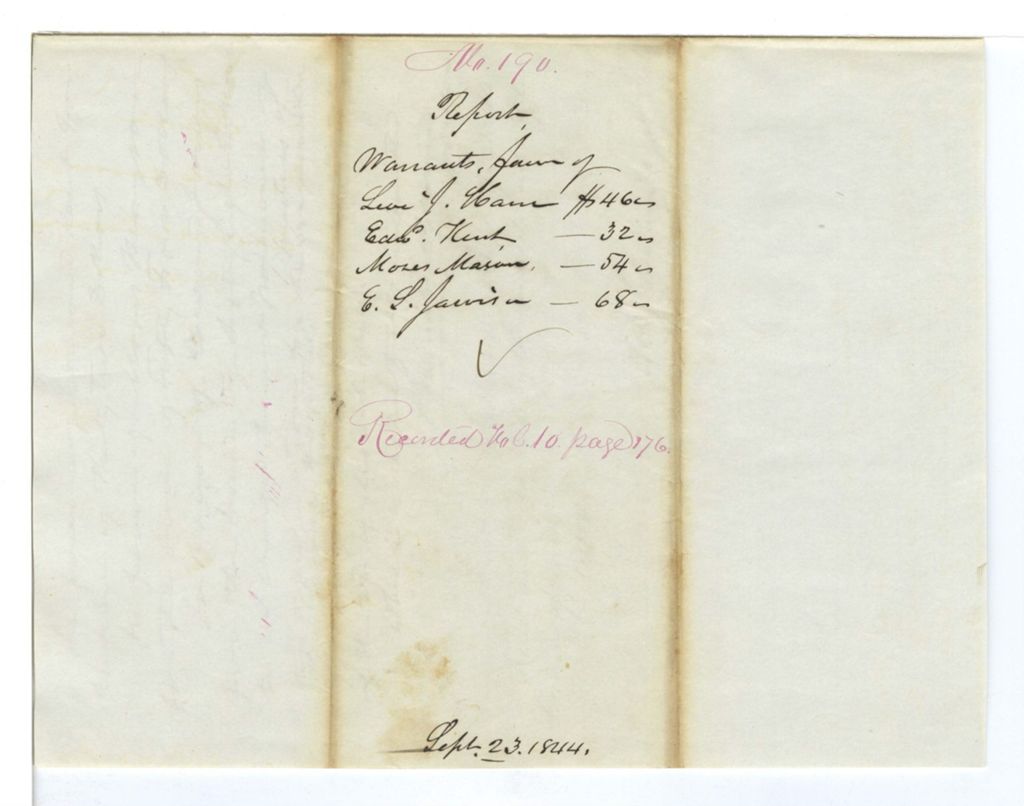 No. 190.
Report,
Warrants, favor of
Levi J. Ham $46
Edwd. Kent — 32
Moses Mason, — 54
E. S. Jarvis — 68
Recorded Vol. 10. page 176.
Sept. 23. 1844.